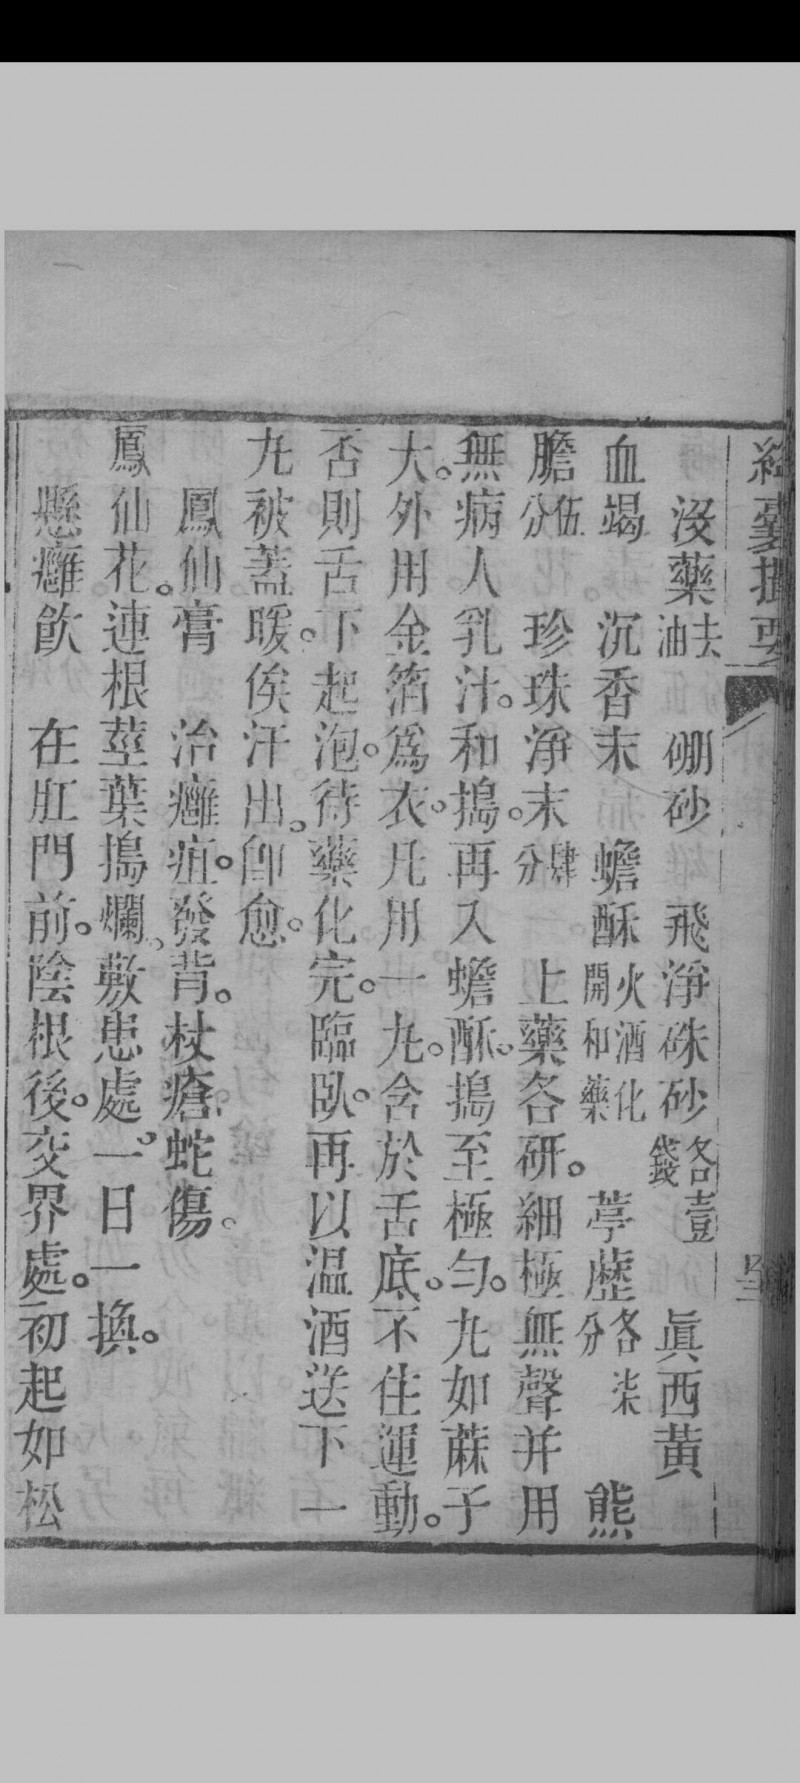 絳囊撮要
沒藥去油 硼砂 飛淨硃砂各壹錢 眞西黃
血竭 沉香末 蟾酥火酒化開和藥 葶藶各柒分 熊
膽伍分 珍珠淨末肆分 上藥各研。細極無聲并用
無病人乳汁。和搗。再入蟾酥。搗至極勻。丸如蔴子
大。外用金箔爲衣。凡用一丸。含於舌底。不住運動。
否則舌下起泡。待藥化完。臨臥。再以温酒送下一
丸被蓋暖。俟汗出。卽愈。
鳳仙膏 治癰疽。發背。杖瘡。蛇傷。
鳳仙花。連根莖葉搗爛。敷患處。一日一換。
懸癰飲 在肛門前。陰根後。交界處。初起如松